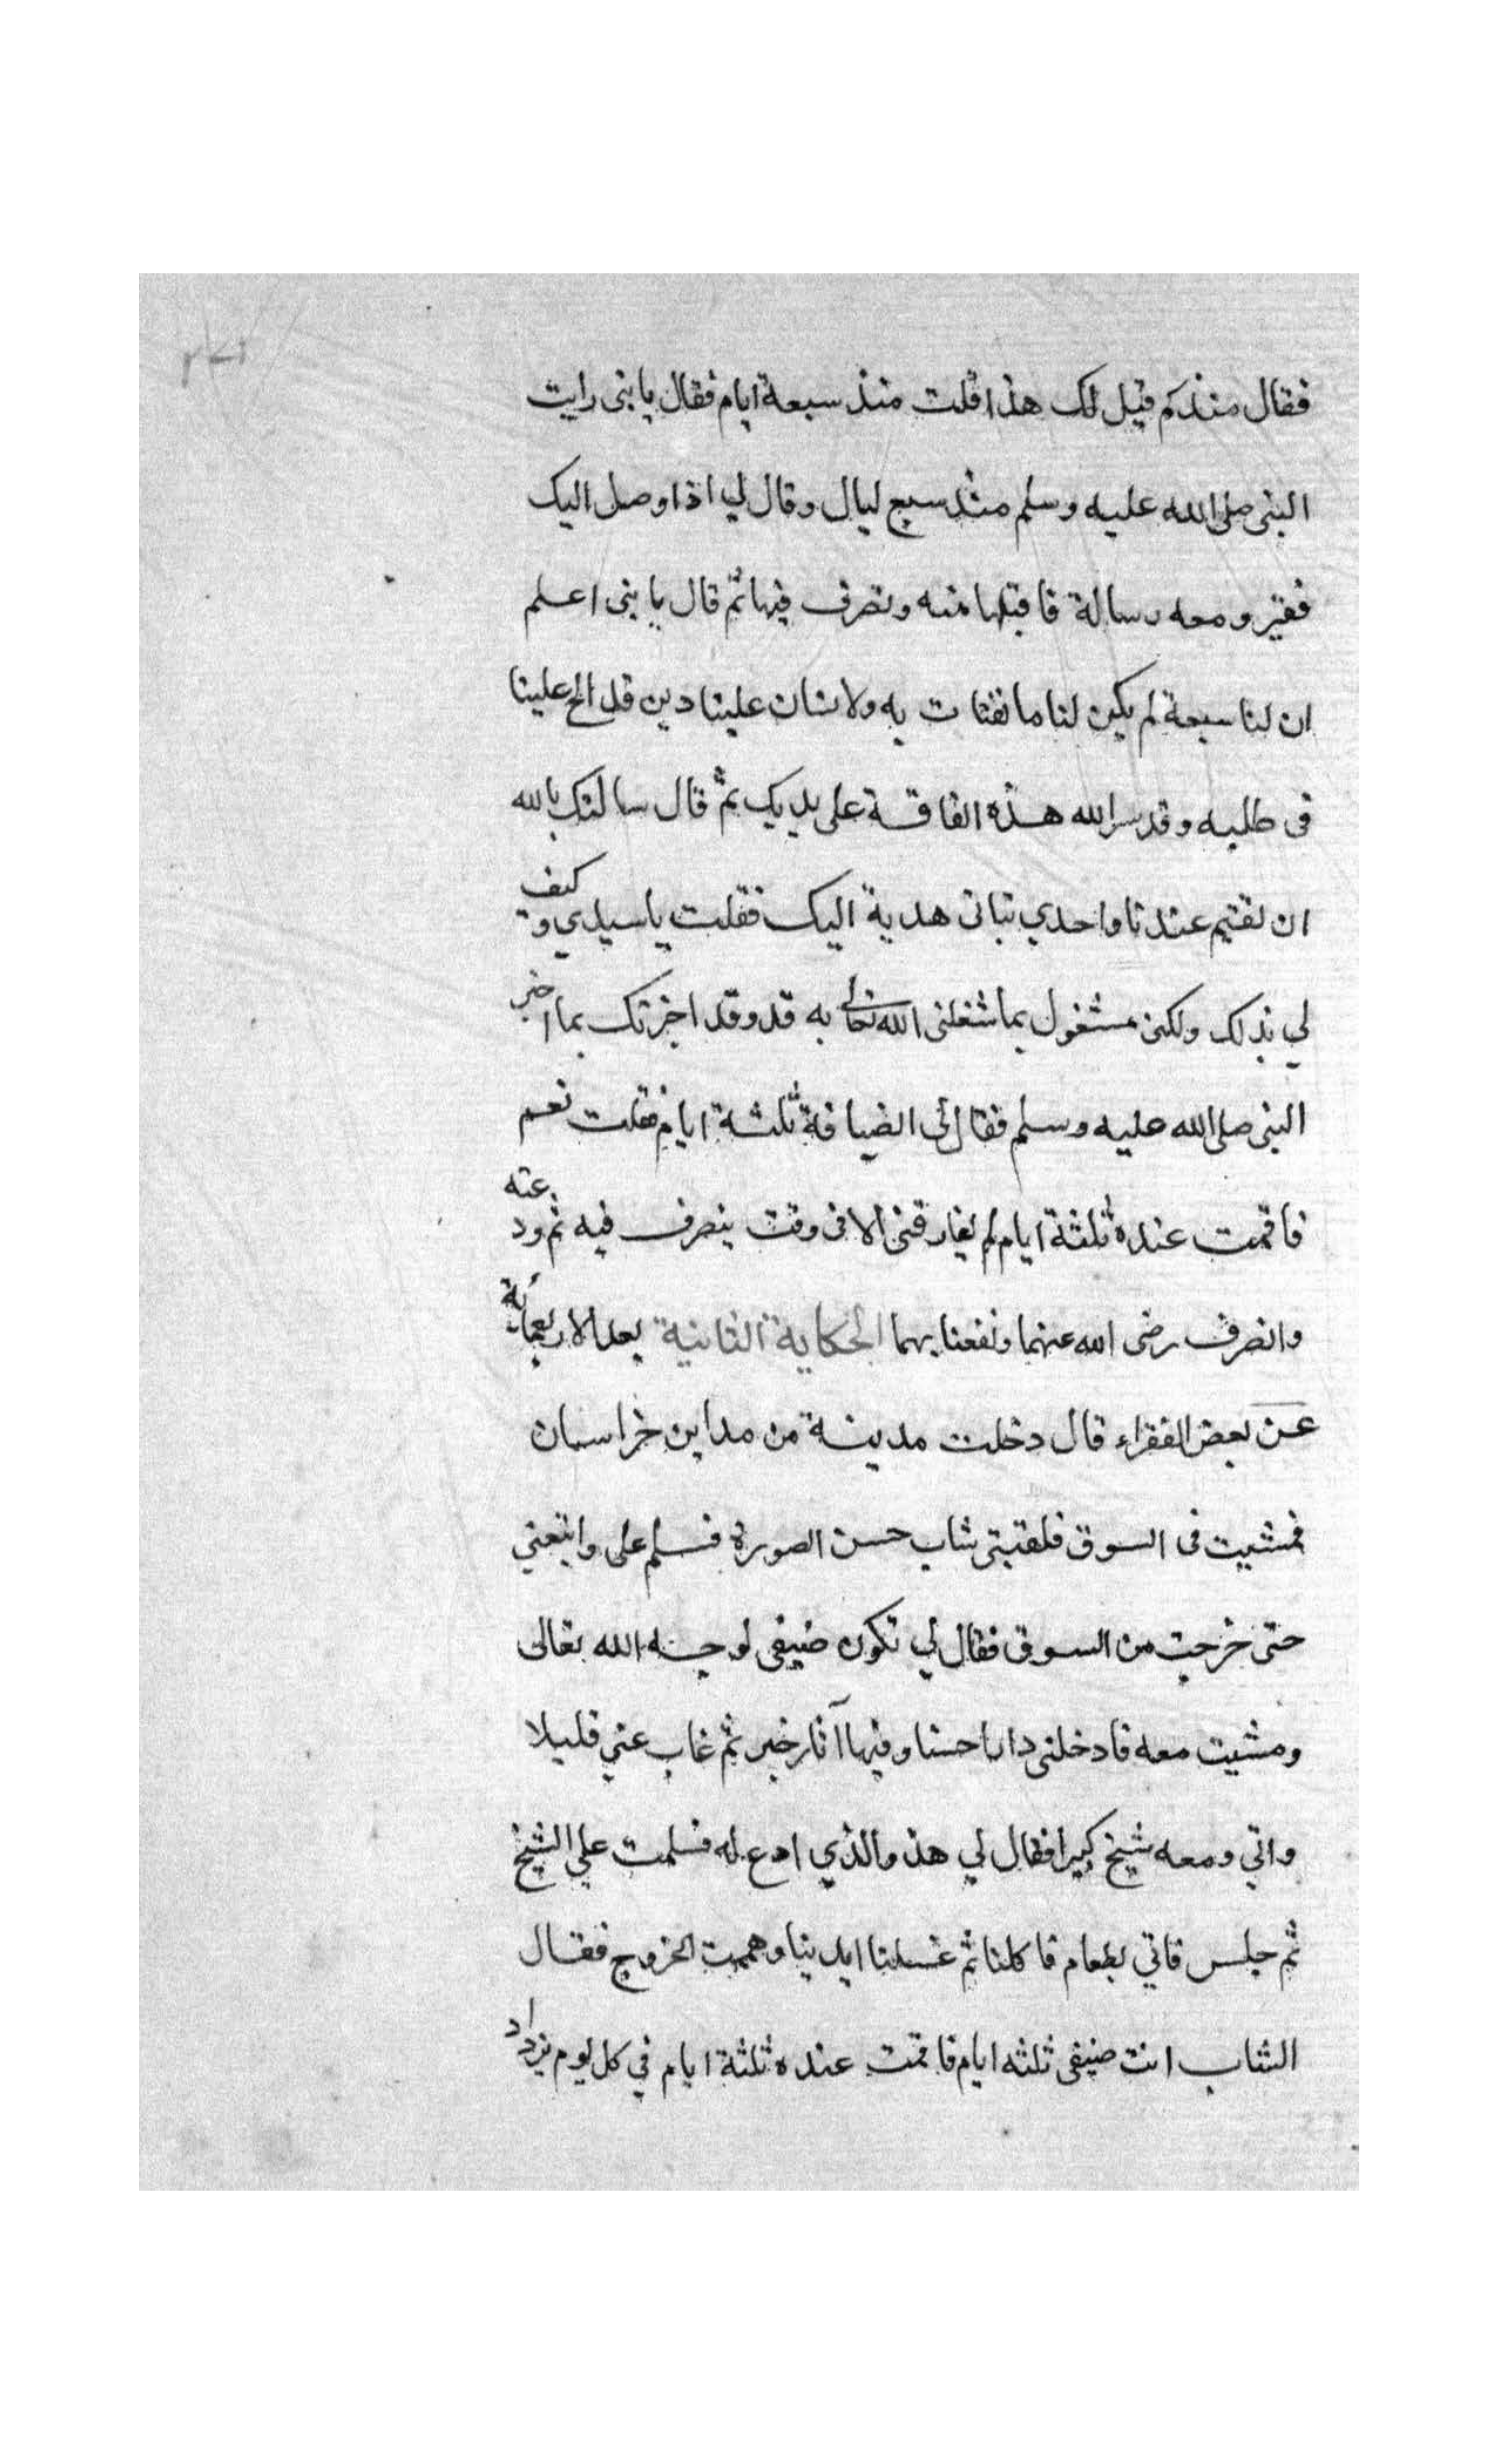 فقال منذكم قيل لك هذا قلت منذ سبعة ايام فقال يا بنى رايت
النبى صلى الله عليه وسلم منذ سبع ليال وقال لي اذا وصل اليك
فقير ومعه رسالة فاقبلها منه وتصرف فيها ثم قال يا بنى اعلم
ان لنا سبعة لم يكن لنا ما نقتات به ولانسان علينا دين قد الح علينا
فى طلبه وقد سر الله هذه الفاقة على يديك ثم قال سالتك بالله
ان تقيم عندنا واحدي بناتى هدية اليك فقلت يا سيدي وكيف
لي بذلك ولكن مشغول بما شغلنى الله تعالى به قد وقد اخبرتك بما اخبر
النبى صلى الله عليه وسلم فقال لى الضيافة ثلثة ايام فقلت نعم
فاقمت عنده ثلثة ايام لم يفارقنى الا فى وقت ينصرف فيه ثم ودعته
وانصرف رضى الله عنهما ونفعنا بهما الحكاية الثانية بعد الاربعمائة
عن بعض الفقراء قال دخلت مدينة من مداين خراسان
فمشيت فى السوق فلقيتى شاب حسن الصورة فسلم على واتبعني
حتى خرجت من السوق فقال لي تكون ضيفى لوجه الله تعالى
ومشيت معه فادخلنى دارا حسنا وفيها آثار خير ثم غاب عني قليلا
واتي ومعه شيخ كبيرا فقال لي هذ والذي ادع له فسلمت علي الشيخ
ثم جلس فاتي بطعام فاكلنا ثم غسلنا ايدينا وهممت الخروج فقال
الشاب انت ضيفى ثلثه ايام فاقمت عنده ثلثة ايام في كل يوم يزداد